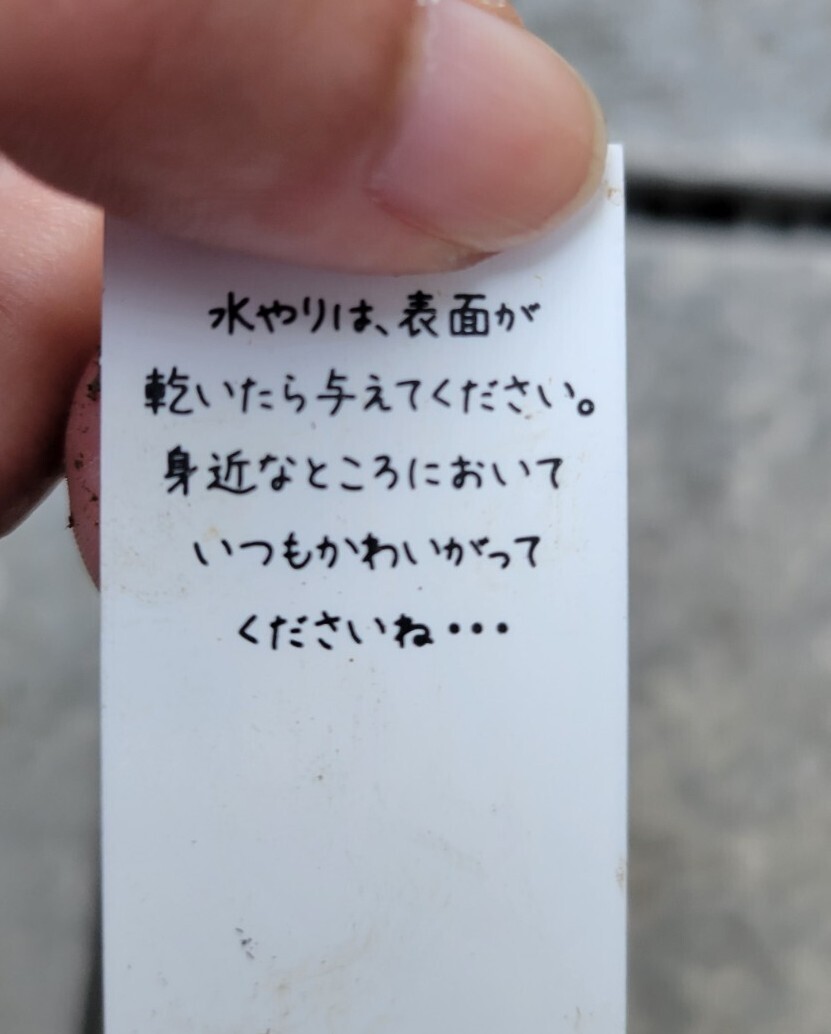 水やりは、表面が
乾いたら与えてください。
身近なところにおいて
いつもかわいがって
くださいね・・・